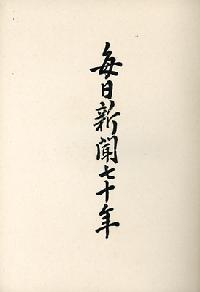 毎日新聞七十年